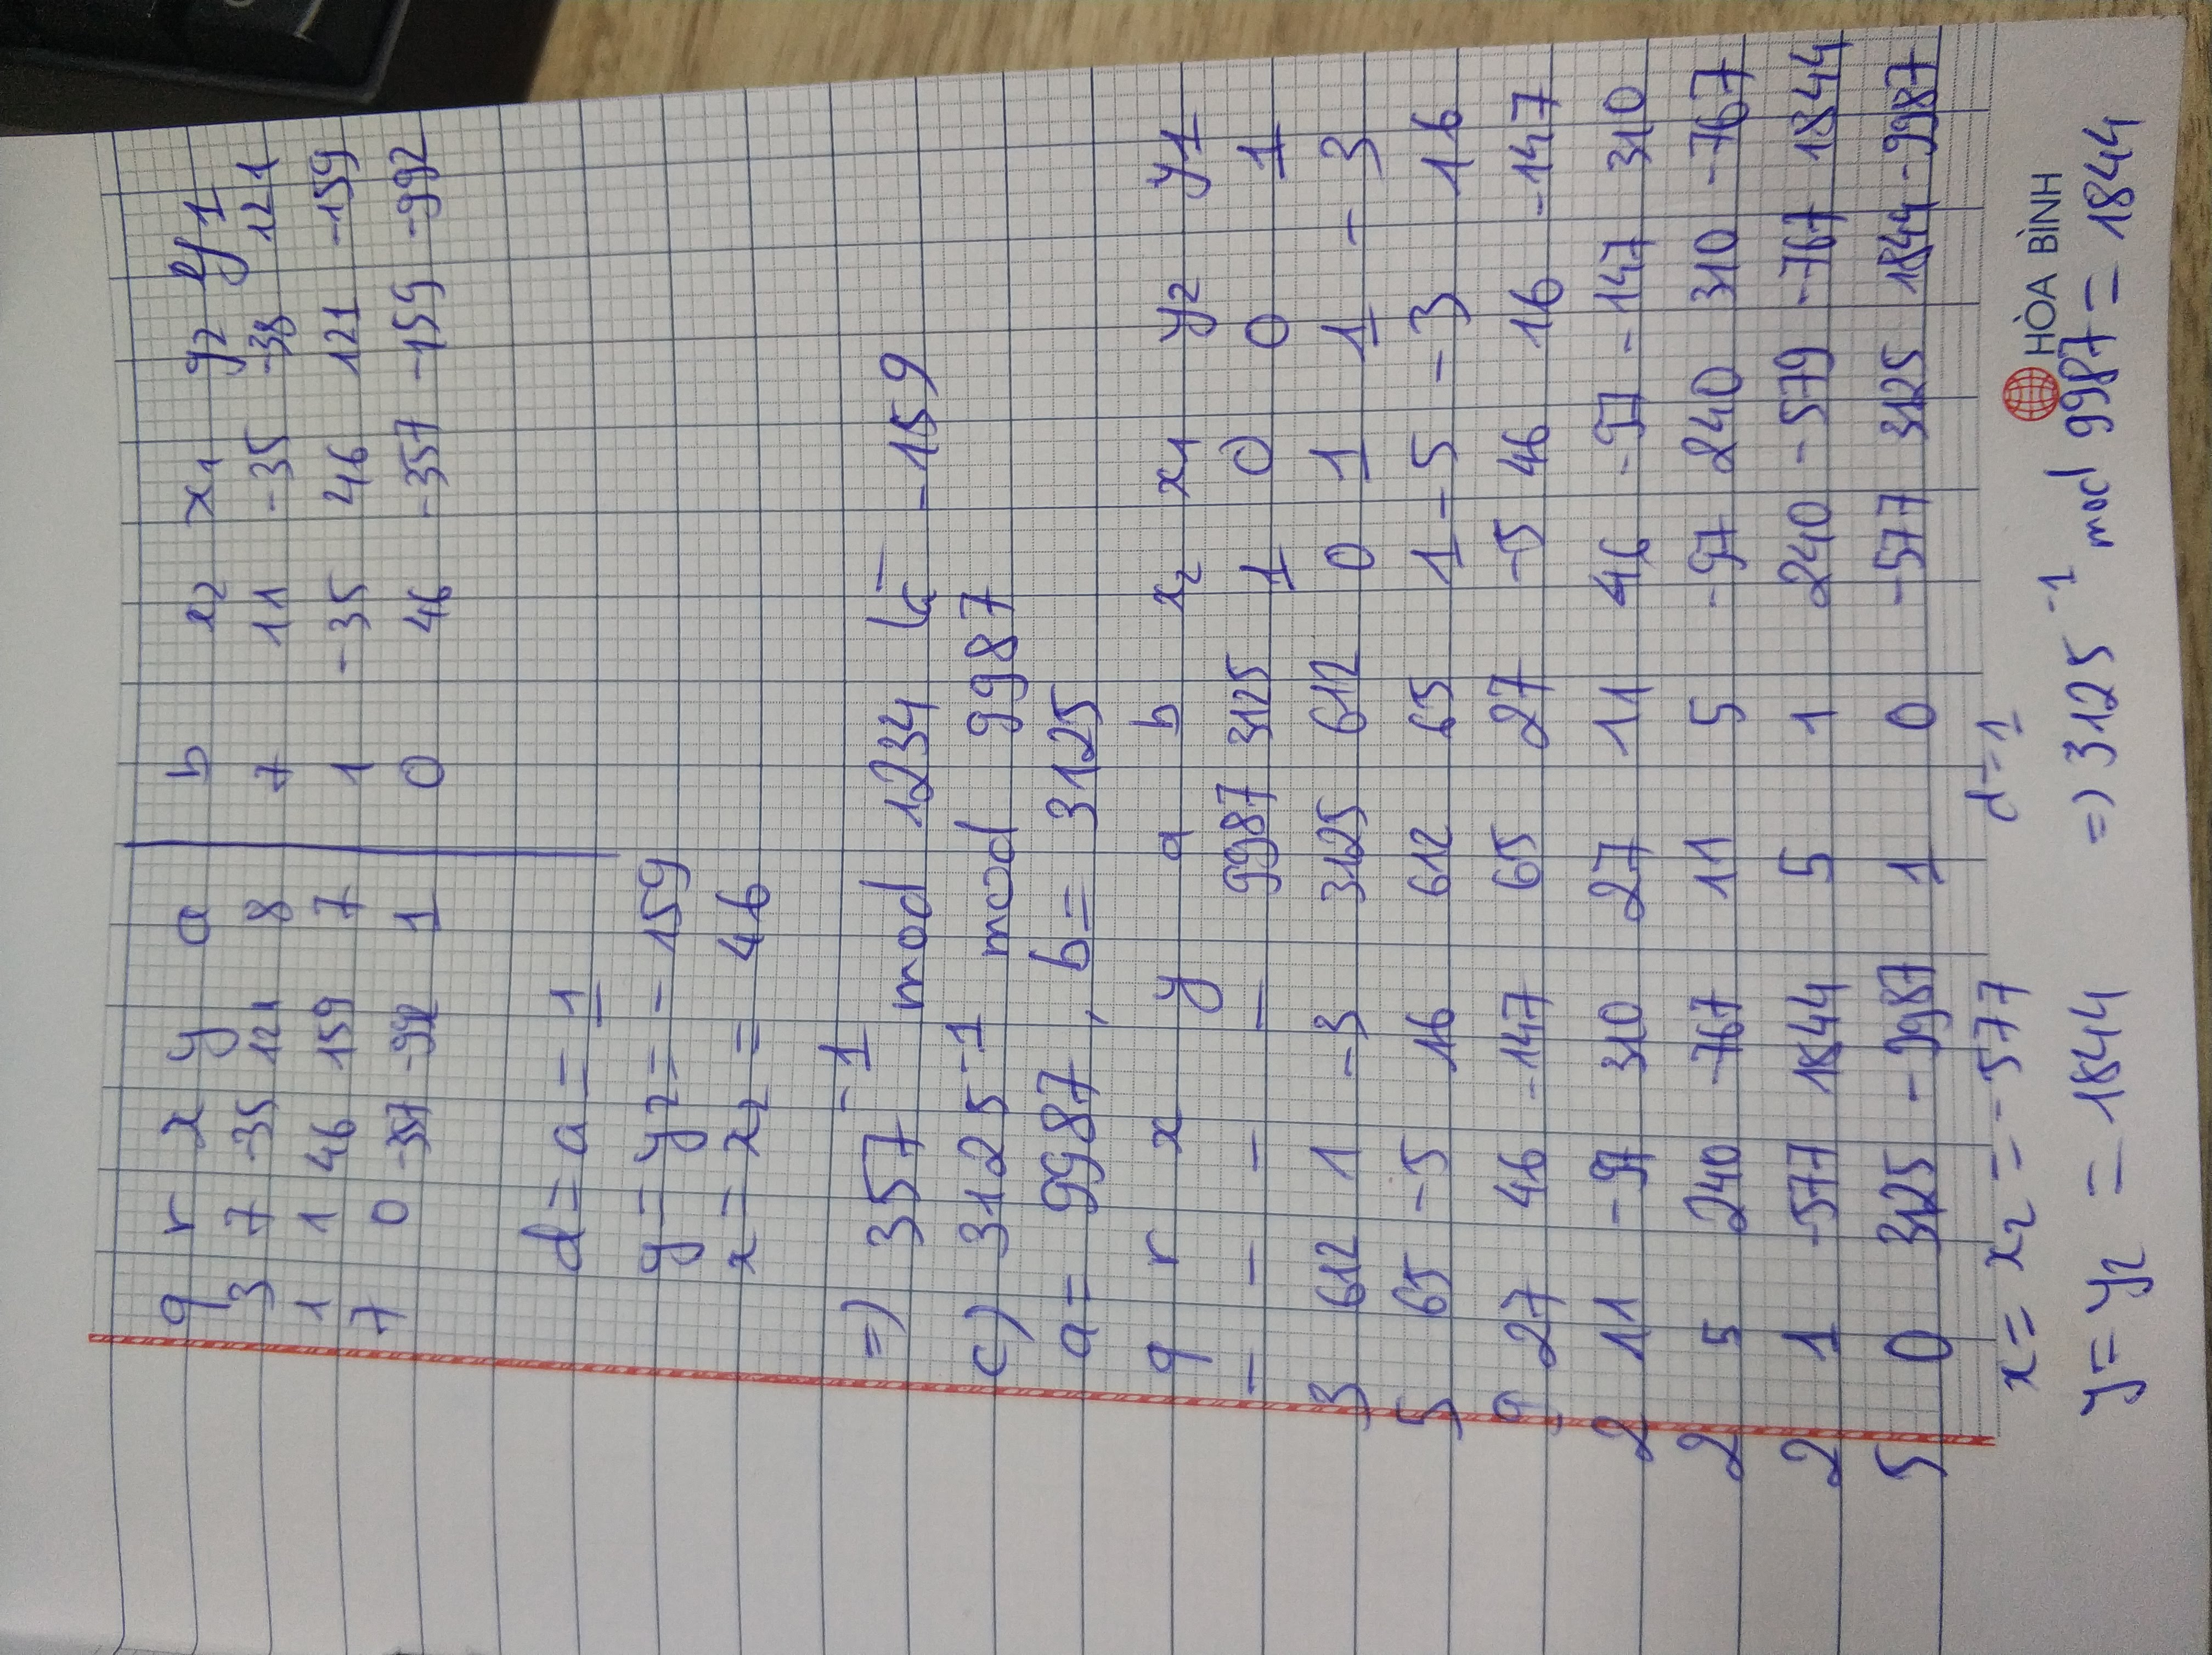 q r x y a b x₂ x₁ y₂ y1
3 7 -35 121 8 7 11 -35 -38 121
1 1 46 159 7 1 -35 46 121 -159
7 0 -357 -992 1 0 46 -357 -159 -992
d = a = 1
y = y₂ = -159
x = x₂ = 46
=) 357⁻¹ mod 1234 là -159
c) 3125⁻¹ mod 9987
a = 9987, b = 3125
q r x y a b x₂ x₁ y₂ y1
— — — — 9987 3125 1 0 0 1
3 612 1 -3 3125 612 0 1 1 -3
5 65 -5 16 612 65 1 -5 -3 16
9 27 46 -147 65 27 -5 46 16 -147
2 11 -97 310 27 11 46 -97 -147 310
2 5 240 -767 11 5 -97 240 310 -767
2 1 -577 1844 5 1 240 -579 -767 1844
5 0 3125 -9987 1 0 -577 3125 1844 -9987
x = x₂ = -577 d = 1
HÒA BÌNH
y = y₂ = 1844 =) 3125⁻¹ mod 9987 = 1844